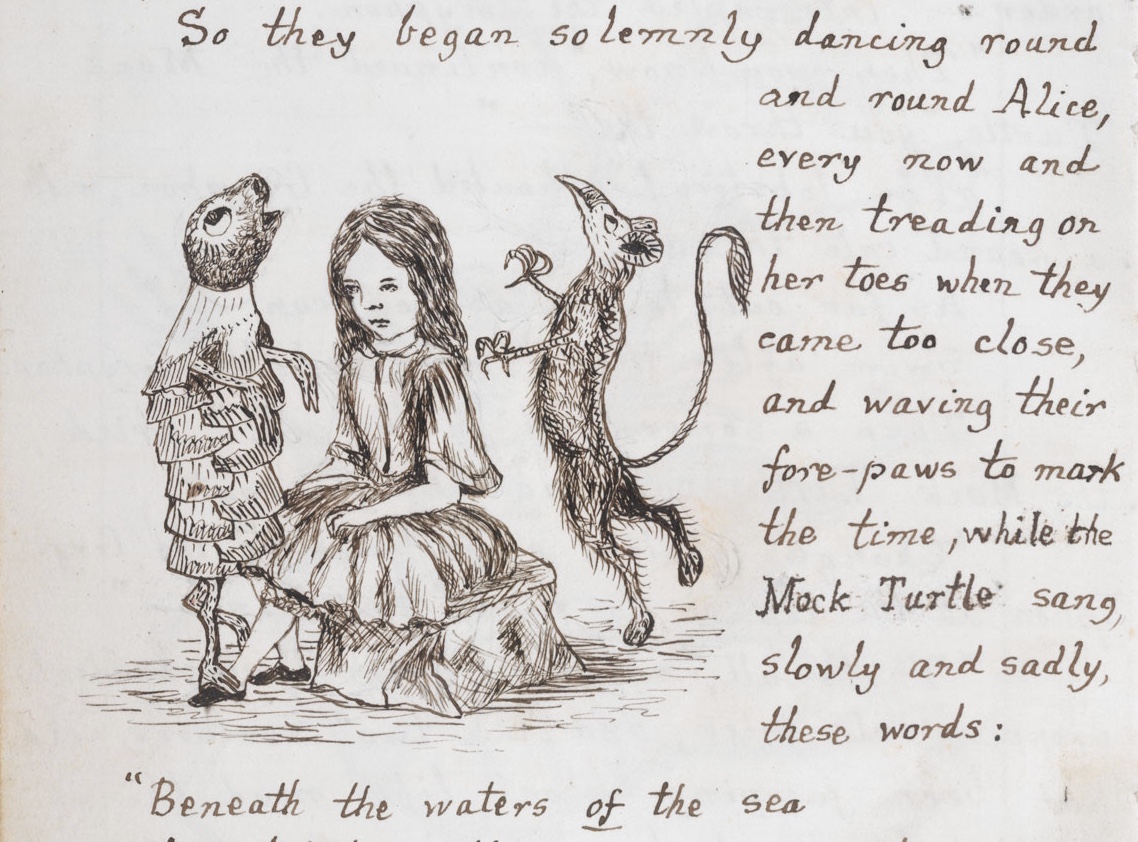 So they began solemnly dancing round
and round Alice,
every now and
then treading on
her toes when they
came too close,
and waving their
fore-paws to mark
the time, while the
Mock Turtle sang,
slowly and sadly,
these words:
"Beneath the waters of the sea